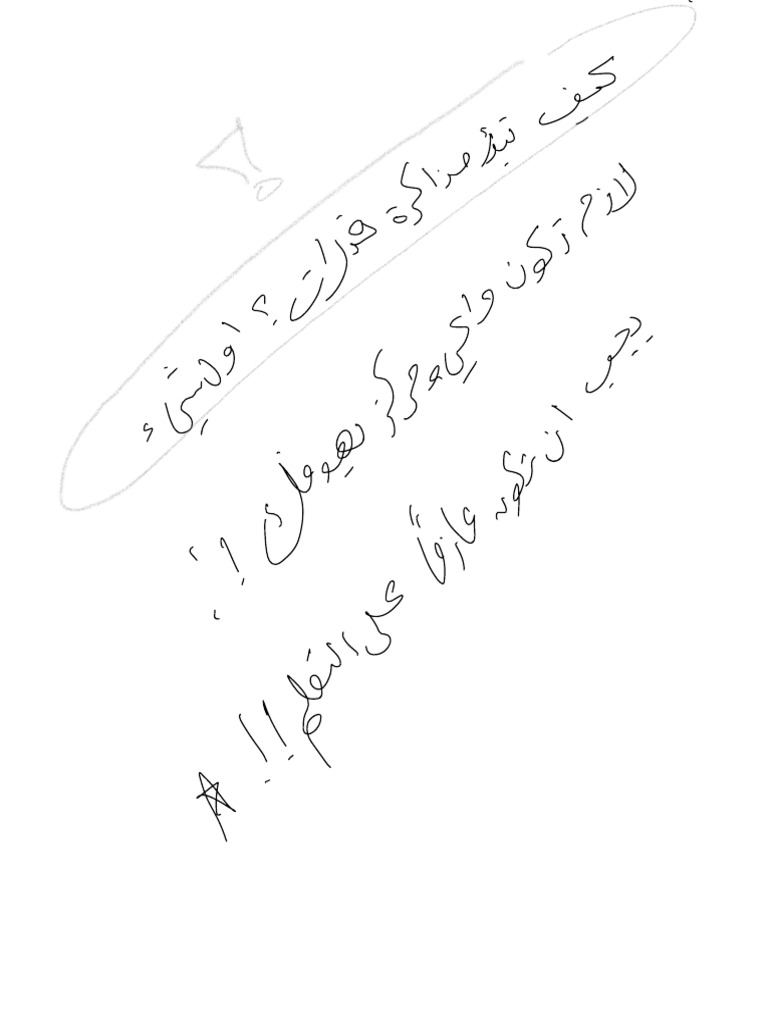 كيف تبدأ مذاكرة قدرات؟ اول شيء
لازم تكون واعي ومركز بهوفك !!
يجب ان تكون عازمًا على التعلم !!